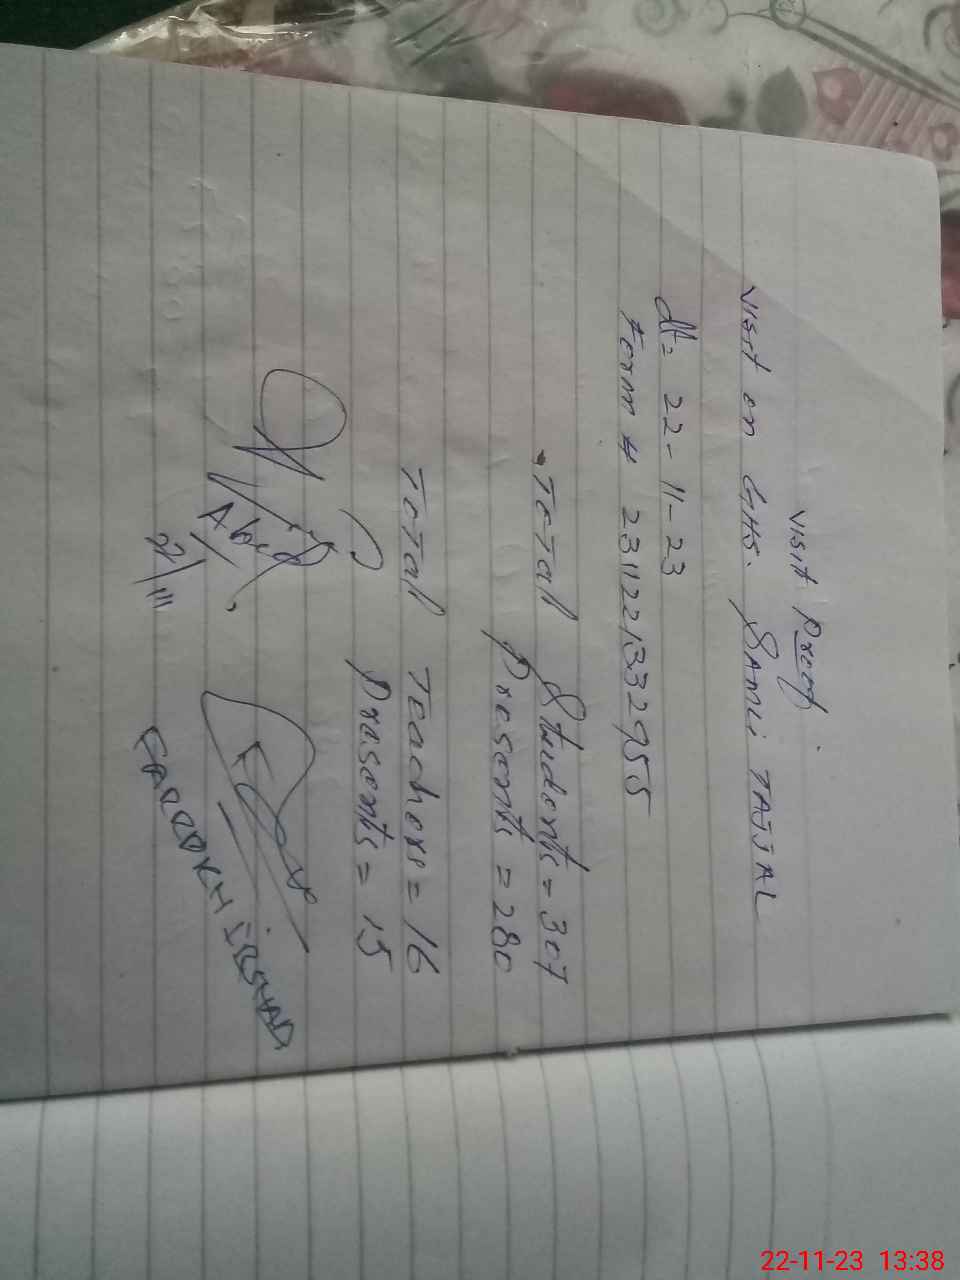 Visit Proof
Visit on GHS. SAMLi TAJJAL
dt= 22-11-23
Form # 2311221332955
Total Students = 307
Presents = 280
Total Teachers = 16
Presents = 15
Abid
22/11
FAROOKH IRSHAD
22-11-23 13:38